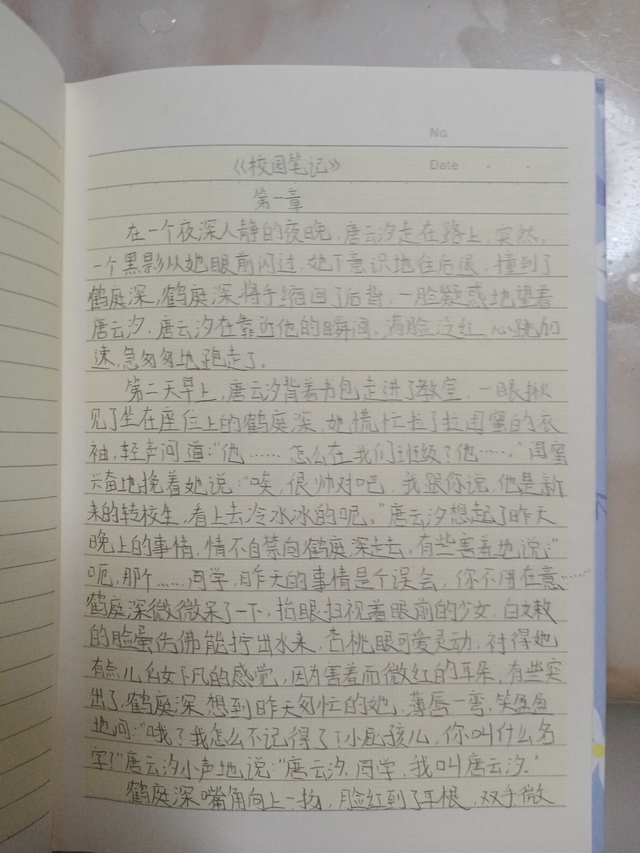 No.
《校园笔记》
Date
第一章
在一个夜深人静的夜晚，唐云汐走在路上，突然，
一个黑影从她眼前闪过，她下意识地往后退，撞到了
鹤庭深，鹤庭深将手缩回了后背，一脸疑惑地望着
唐云汐，唐云汐在靠近他的瞬间，满脸泛红，心跳加
速，急匆匆地跑走了。
第二天早上，唐云汐背着书包走进了教室，一眼瞅
见了坐在座位上的鹤庭深，她慌忙拉了拉闺蜜的衣
袖，轻声问道：“他……怎么在我们班级？他……。”闺蜜
兴奋地挽着她说：“唉，很帅对吧，我跟你说，他是新
来的转校生，看上去冷冰冰的呢。”唐云汐想起了昨天
晚上的事情，情不自禁向鹤庭深走去，有些害羞地说：“
呃，那个……同学，昨天的事情是个误会，你不用在意……
鹤庭深微微呆了一下，抬眼扫视着眼前的少女，白嫩
的脸蛋仿佛能拧出水来，杏桃眼可爱灵动，衬得她
有点儿仙女下凡的感觉，因为害羞而微红的耳朵，有些突
出了，鹤庭深想到昨天匆忙的她，薄唇一弯，笑盈盈
地问：“哦？我怎么不记得了？小屁孩儿，你叫什么名
字？”唐云汐小声地说：“唐云汐，同学，我叫唐云汐。”
鹤庭深嘴角向上一扬，脸红到了耳根，双手微